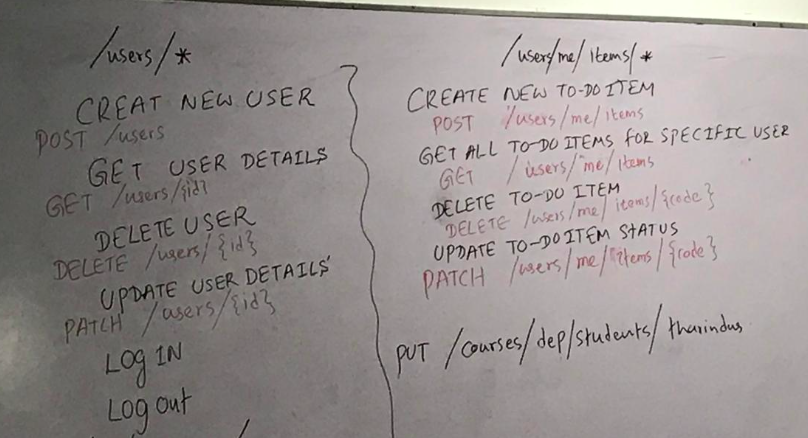 /users/*
CREAT NEW USER
POST /users
GET USER DETAILS
GET /users/{id}
DELETE USER
DELETE /users/{id}
UPDATE USER DETAILS
PATCH /users/{id}
LOG IN
LOG out
/users/me/items/*
CREATE NEW TO-DO ITEM
POST /users/me/items
GET ALL TO-DO ITEMS FOR SPECIFIC USER
GET /users/me/items
DELETE TO-DO ITEM
DELETE /users/me/items/{code}
UPDATE TO-DO ITEM STATUS
PATCH /users/me/items/{code}
PUT /courses/dep/students/tharindus